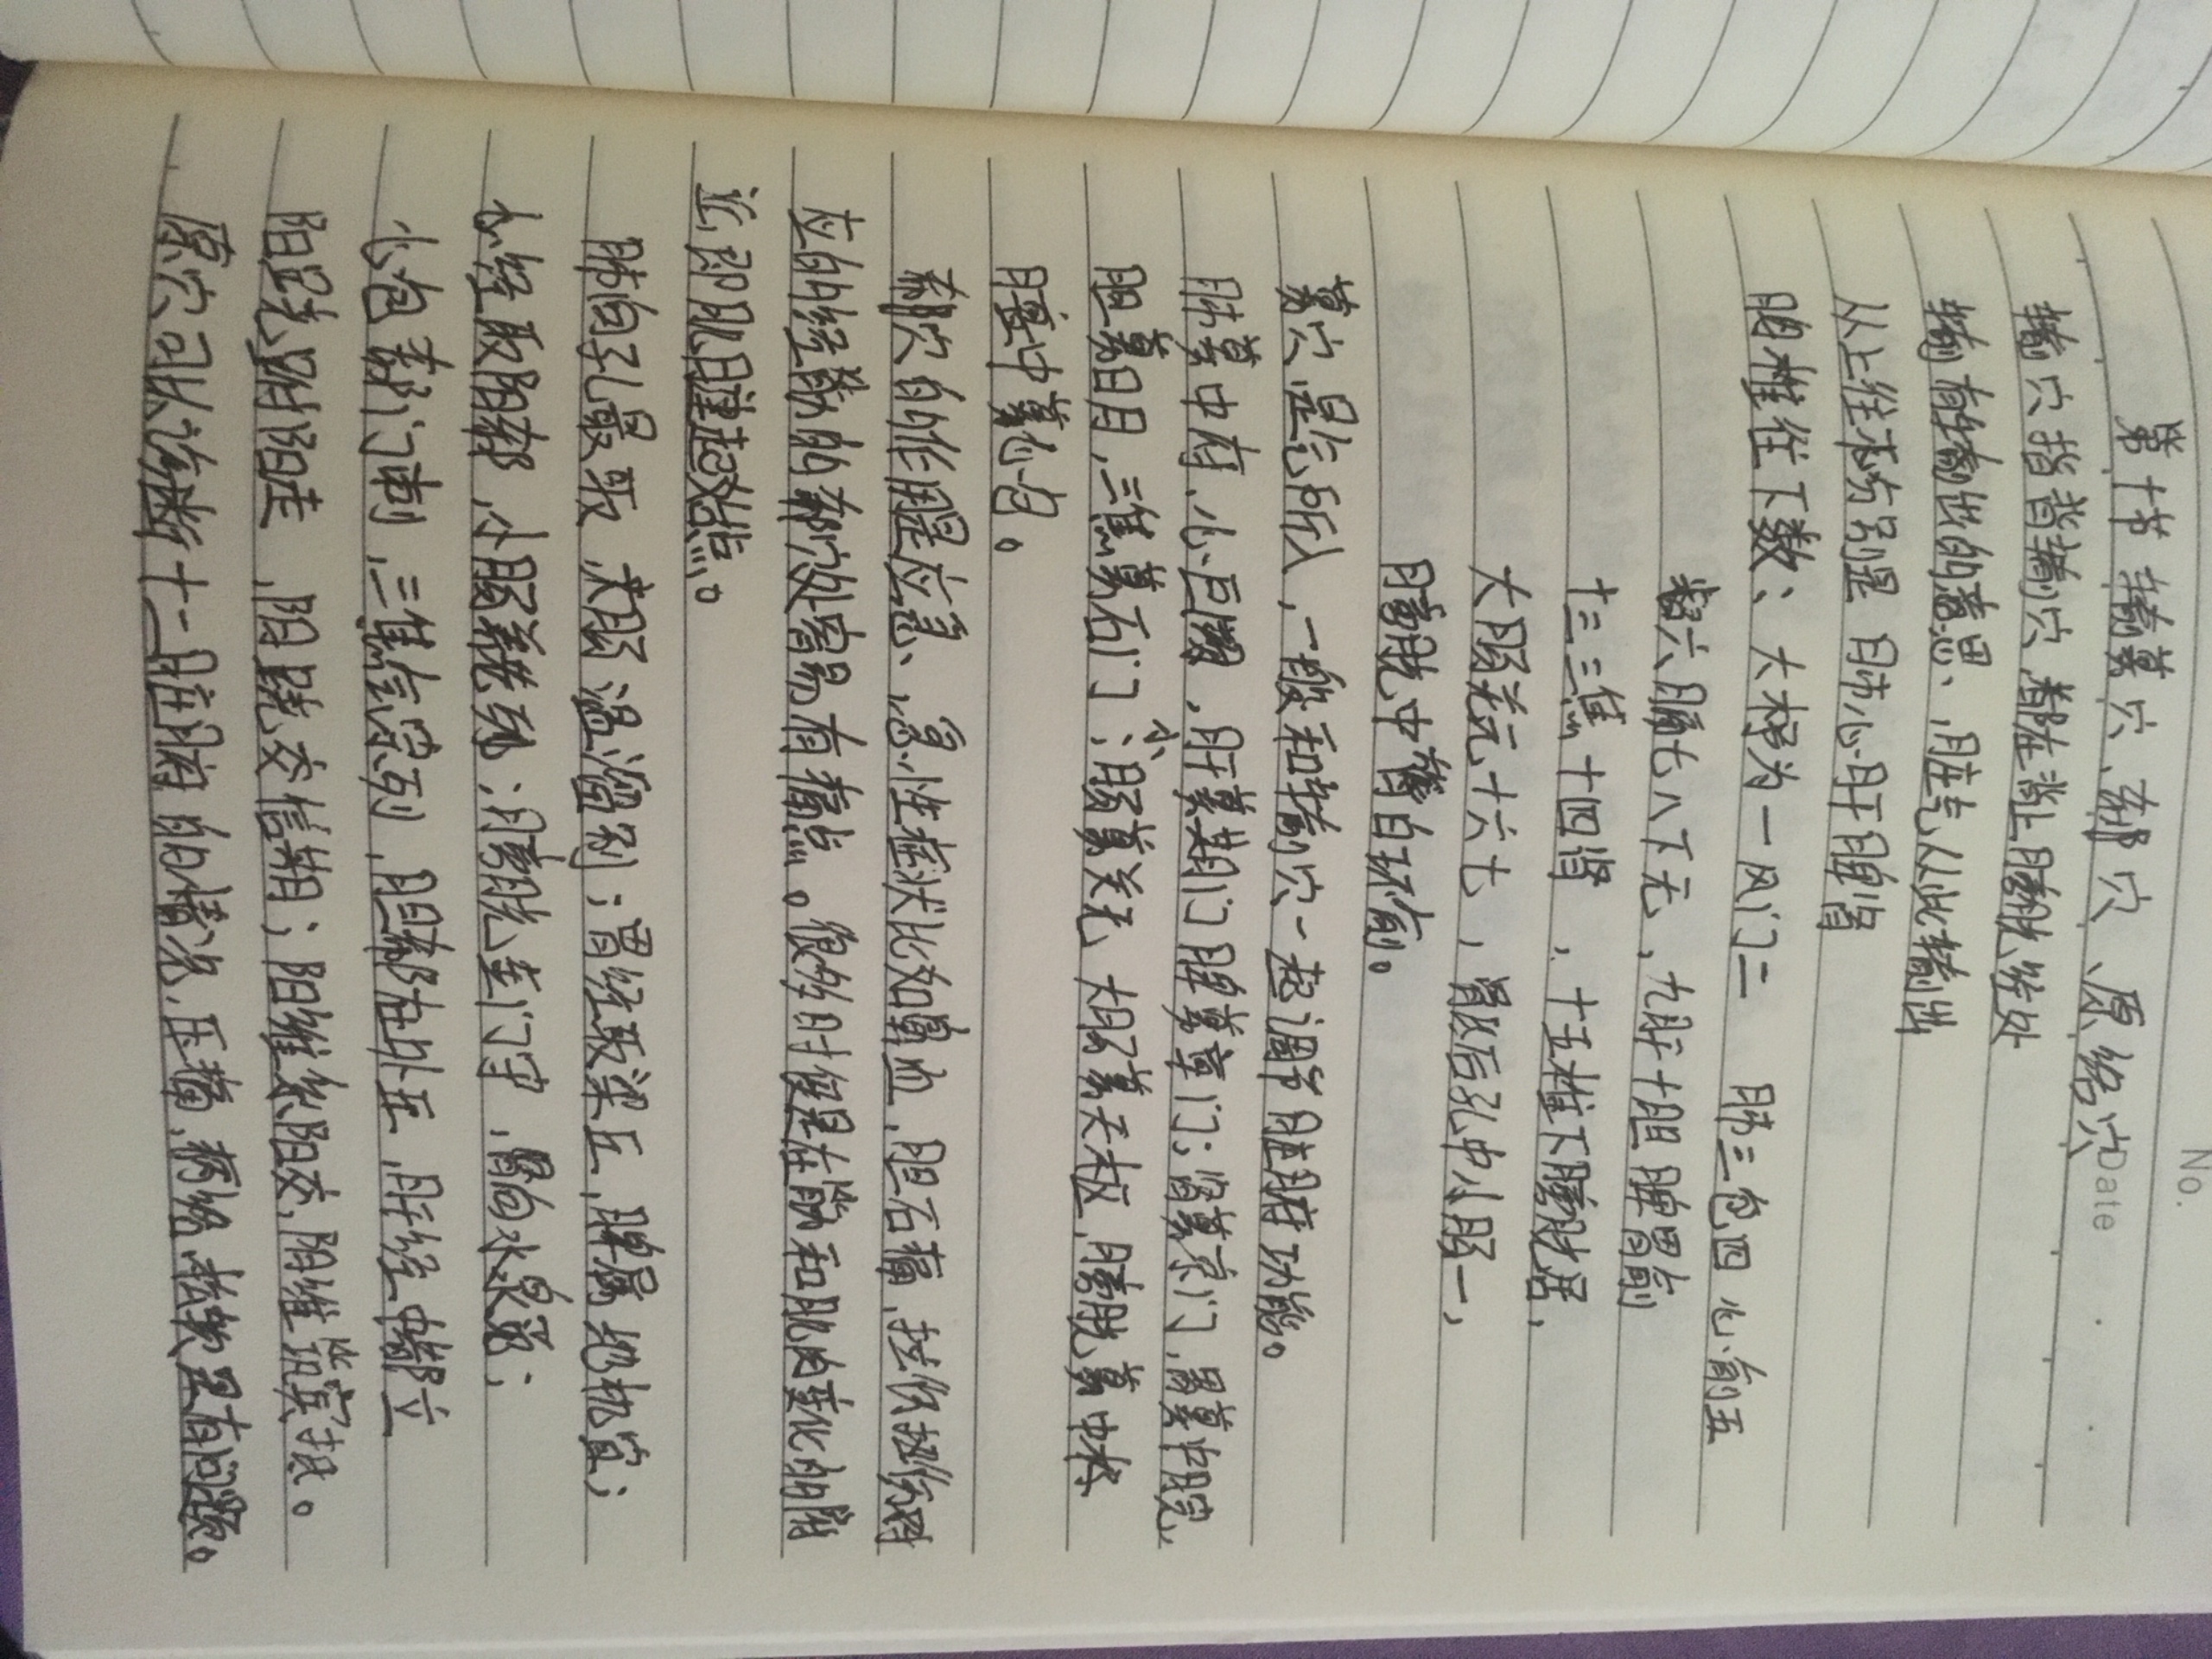 No.
Date
第十节 输募穴、郄穴、原络穴
输穴指背输穴 都在背上膀胱经处
输有转输出的意思、脏气从此输出
从上往来分别是 肺心肝脾肾
胸椎往下数、大杼为一风门二 肺三包四 心俞五
督六膈七八下无，九肝十胆 脾胃俞
十三三焦 十四肾，十五椎下膀胱居，
大肠关元十六七，最后孔中小肠一，
膀胱中膂白环俞。
募穴是气所入，一般和输穴一起调节脏腑功能。
肺募中府、心巨阙，肝募期门脾募章门；肾募京门，胃募中脘、
胆募日月，三焦募石门；小肠募关元 大肠募天枢，膀胱募中极
膻中募心包。
郄穴的作用是应急、急性症状比如鼻血，胆石痛，按你按你对
应的经脉的郄穴处容易有痛点。很多时候是在筋和肌肉变化的附
近，即肌腱起效点。
肺向孔最取，大肠温溜别；胃经取梁丘，脾属地机宜；
心经取阴郄，小肠养老列；膀胱金门守，肾向水泉施；
心包郄门刺，三焦会宗列，胆郄在外丘，肝经中都立
阳跷跗阳走，阴跷交信期；阳维系阳交，阴维筑宾找。
原穴可以诊断十二脏腑的情况，压痛、病络、松软是有问题。